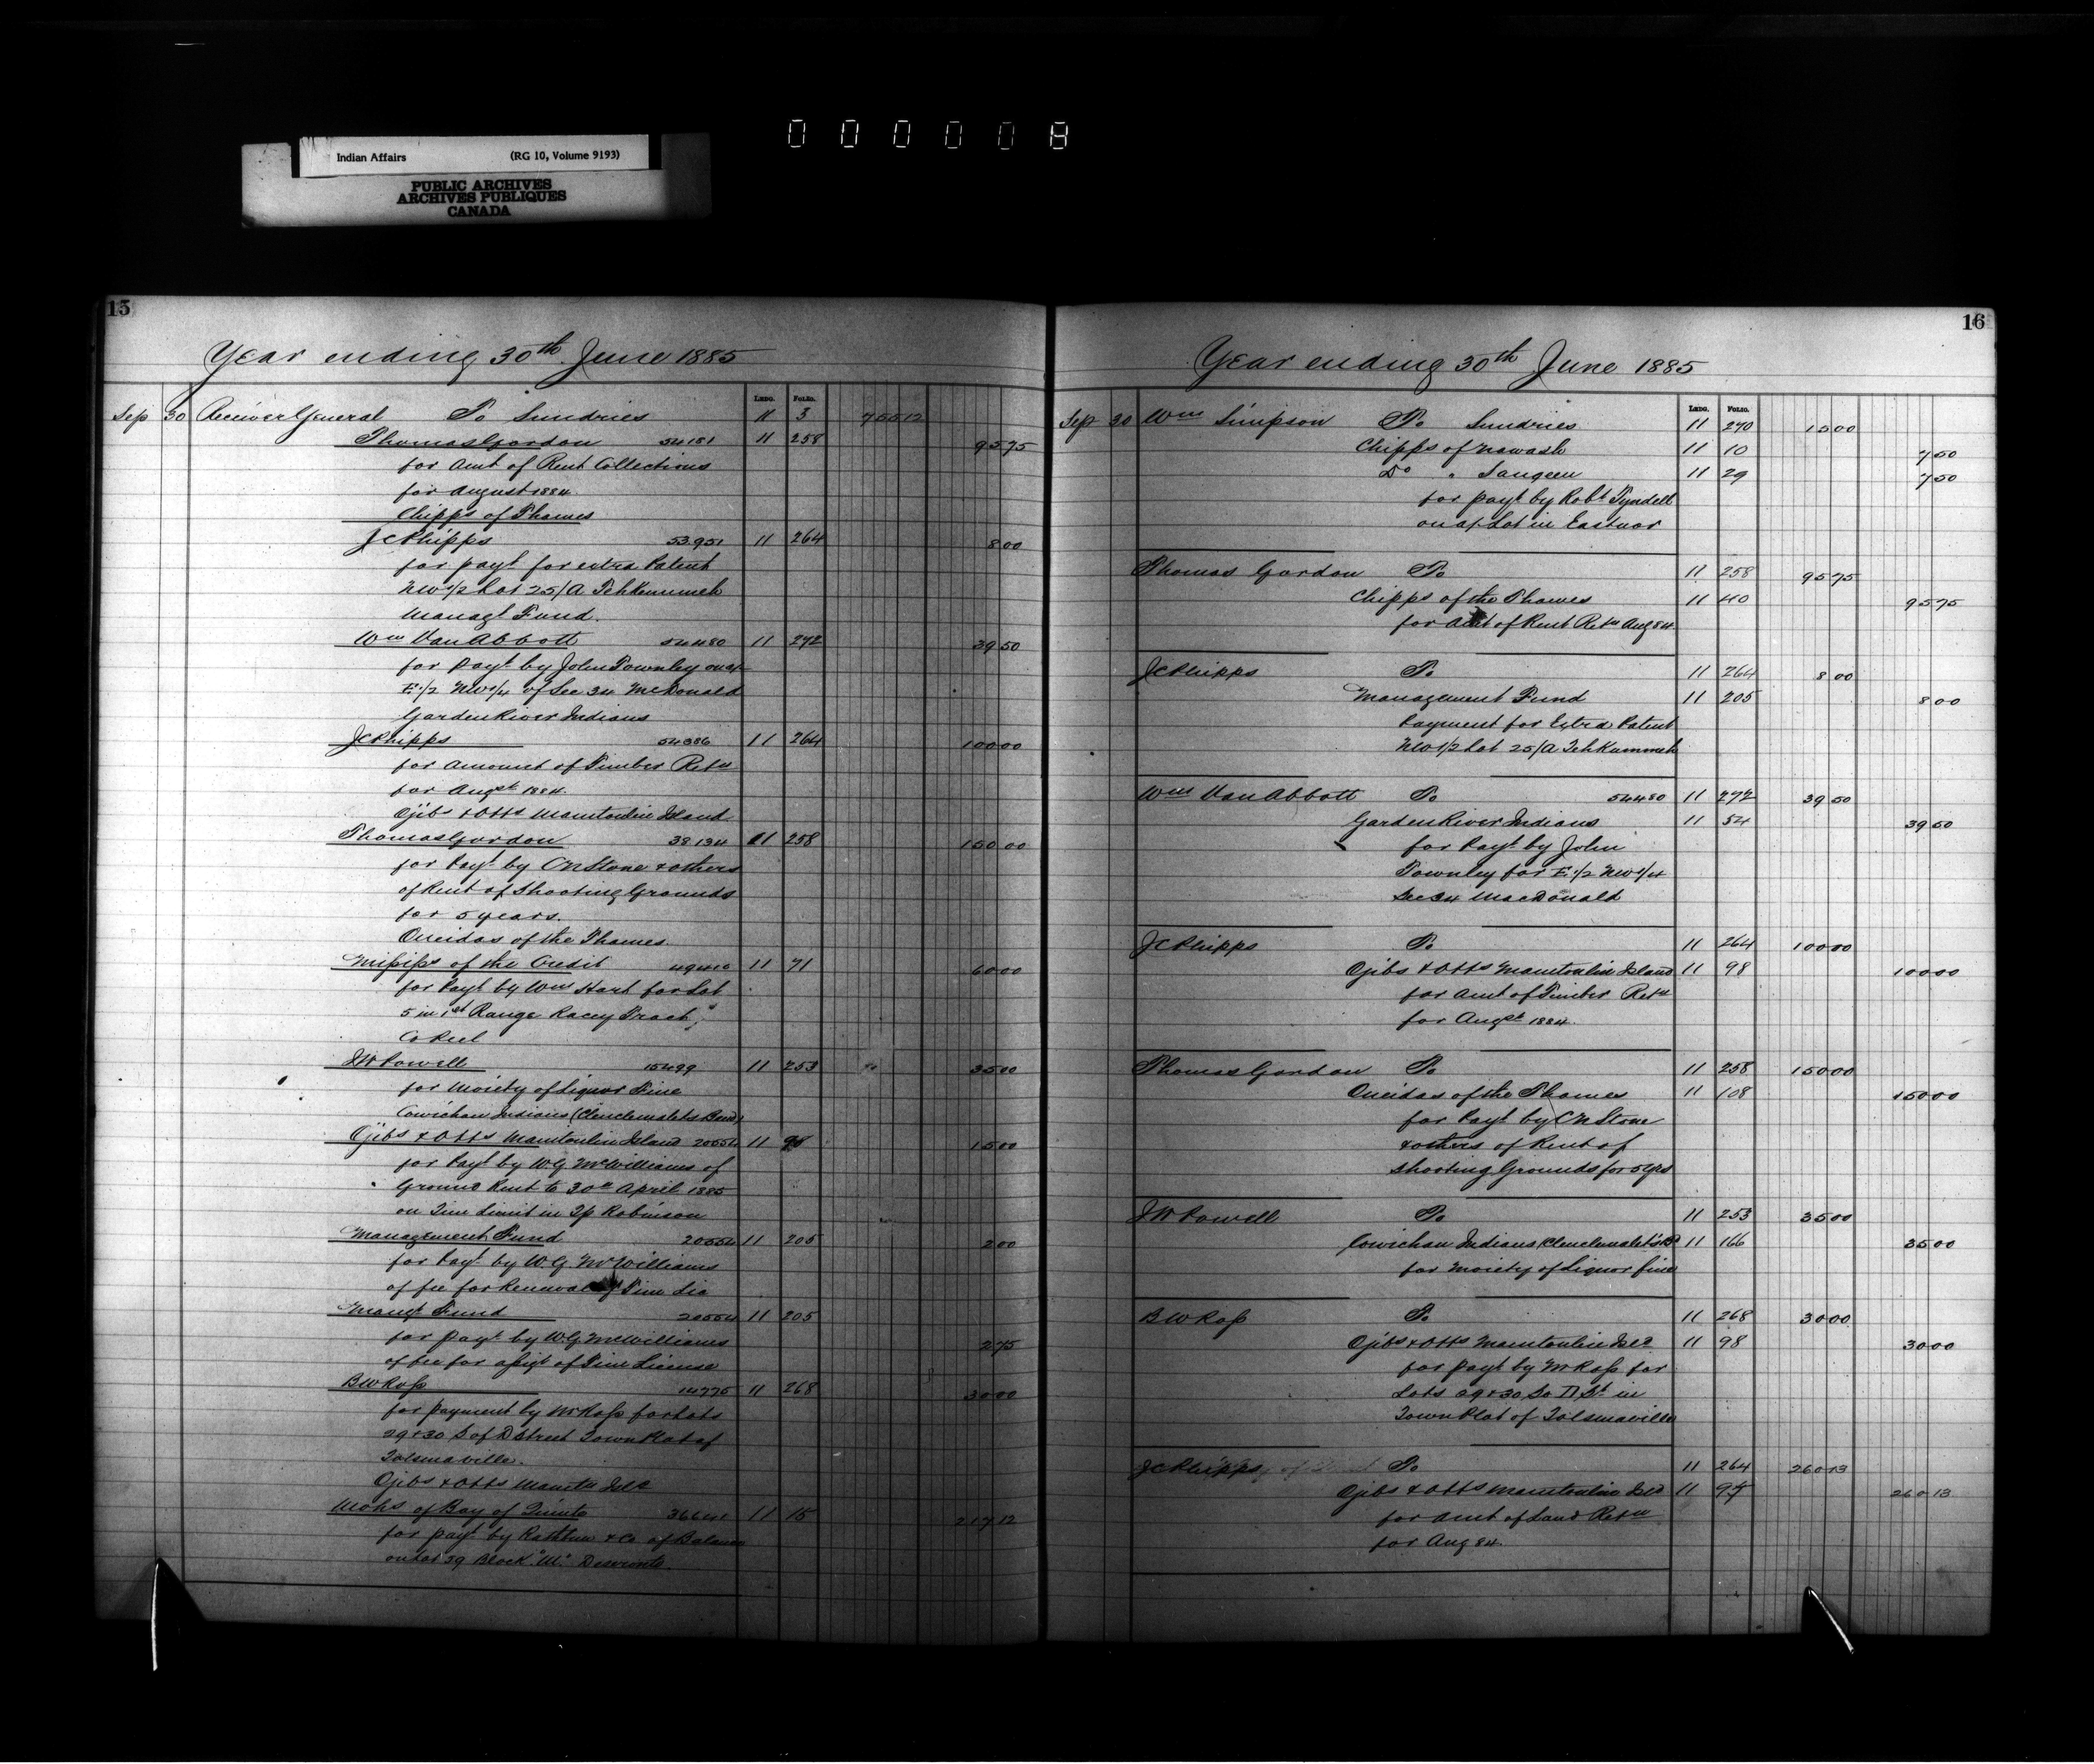 0 0 0 0 0 8
Indian Affairs (RG 10, Volume 9193)
PUBLIC ARCHIVES
ARCHIVES PUBLIQUES
CANADA
15
Year ending 30th June 1885
LEDG. FOLIO.
Sep 30 Receiver General To Sundries 11 3 755 12
Thomas Gordon 54181 11 258 95 75
for Amt of Rent Collections
for August 1884
Chipps of Thames
JC Phipps 53.951 11 264 8 00
for payt for extra Patent
NW 1/2 Lot 25/A Tehkummeh
Managt Fund.
Wm Van Abbott 54480 11 272 39 50
for payt by John Townley on a/c
E 1/2 NW 1/4 of Sec 34 McDonald
Garden River Indians
JC Phipps 54386 11 264 100 00
for Amount of Timber Retn
for Augst 1884.
Ojibs & Otts Manitoulin Island
Thomas Gordon 38134 11 258 150 00
for Payt by CN Stone & others
of Rent of Shooting Grounds
for 5 years.
Oneidas of the Thames
Mississ of the Credit 49410 11 71 60 00
for Payt by Wm Hart for Lot
5 in 1st Range Racey Tract,
Co Peel
JW Powell 15499 11 253 35 00
for Moiety of Liquor Fine
Cowichan Indians (Clemclemalets Band)
Ojibs & Otts Manitoulin Island 20554 11 98 15 00
for Payt by WG McWilliams of
Ground Rent to 30th April 1885
on Tim Limit in Tp Robinson
Management Fund 20554 11 205 2 00
for Payt by WG McWilliams
of fee for Renewal of Tim Lic
Managt Fund 20554 11 205
for payt by WG McWilliams 2 75
of fee for assigt of Tim License
BW Ross 14775 11 268 30 00
for payment by W Ross for Lots
29 & 30 S of D Street Town Plot of
Tolsmaville.
Ojibs & Otts Manitn Isld
Mohs of Bay of Quinte 36641 11 15 217 12
for payt by Rathbun & Co of Balance
on Lot 39 Block "M" Deseronto.
16
Year ending 30th June 1885
LEDG. FOLIO.
Sep 30 Wm Simpson To Sundries 11 270 15 00
Chipps of Nawash 11 10 7 50
Do " Saugeen 11 29 7 50
for payt by Robt Tyndell
on a/c Lot in Eastnor
Thomas Gordon To 11 258 95 75
Chipps of the Thames 11 40 95 75
for Amt of Rent Retn Aug 84
JC Phipps To 11 264 8 00
Management Fund 11 205 8 00
Payment for Extra Patent
NW 1/2 Lot 25/A Tehkummeh
Wm Van Abbott To 54480 11 272 39 50
Garden River Indians 11 54 39 50
for Payt by John
Townley for E 1/2 NW 1/4
Sec 34 MacDonald
JC Phipps To 11 264 100 00
Ojibs & Otts Manitoulin Island 11 98 100 00
for Amt of Timber Retn
for Augst 1884.
Thomas Gordon To 11 258 150 00
Oneidas of the Thames 11 108 150 00
for Payt by CN Stone
& others of Rent of
Shooting Grounds for 5 yrs
JW Powell To 11 253 35 00
Cowichan Indians (Clemclemalets Bd 11 166 35 00
for Moiety of Liquor fine
BW Ross To 11 268 30 00
Ojibs & Otts Manitoulin Isld 11 98 30 00
for payt by W Ross for
Lots 29 & 30 So D St in
Town Plot of Tolsmaville
JC Phipps To 11 264 260 13
Ojibs & Otts Manitoulin Isld 11 97 260 13
for Amt of Land Retn
for Aug 84.